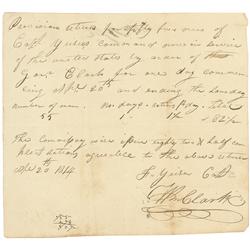 Provision return for fifty five men of
Capt Yeizer Command now in service
of the united States by order of
Gov Clark for one day commen
cing Sept 20th and ending the same day
number of men. no. days. rations pr day. Total
55 1 1½ 82½
The Commissary will issue eighty two & half com
plete Rations agreeable to the above return
Sept 20 1814
F. Yeizer Capt
Clark